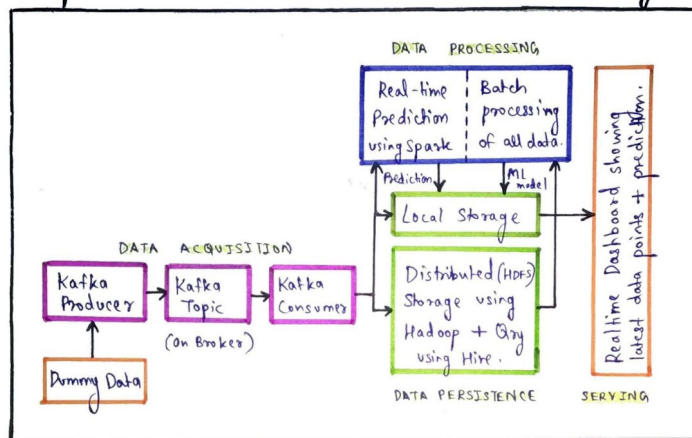 DATA PROCESSING
Real-time
Prediction
using Spark
Batch
processing
of all data.
Prediction
ML
model
Local Storage
DATA ACQUISITION
Kafka
Producer
Kafka
Topic
(on Broker)
Kafka
Consumer
Dummy Data
Distributed (HDFS)
Storage using
Hadoop + Qry
using Hive.
DATA PERSISTENCE
Realtime Dashboard showing
latest data points + prediction.
SERVING